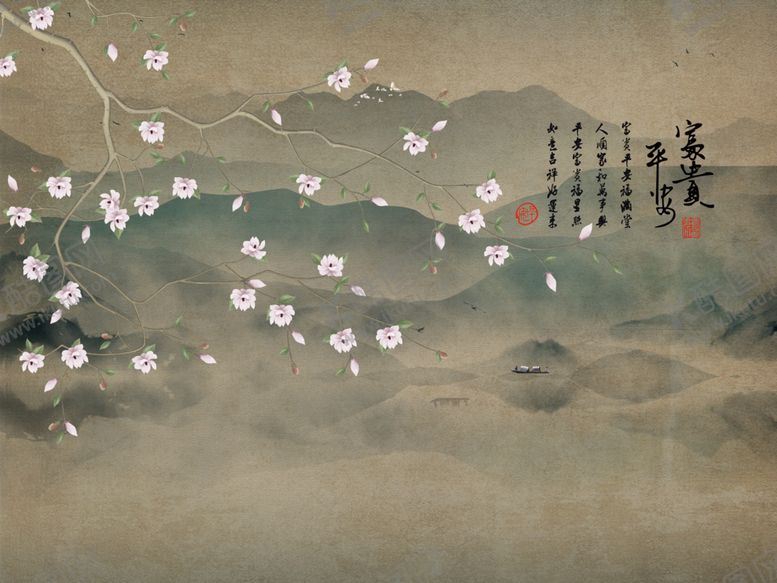 富貴
平安
富贵平安福满堂
人顺家和万事兴
平安富贵福星照
如意吉祥好运来